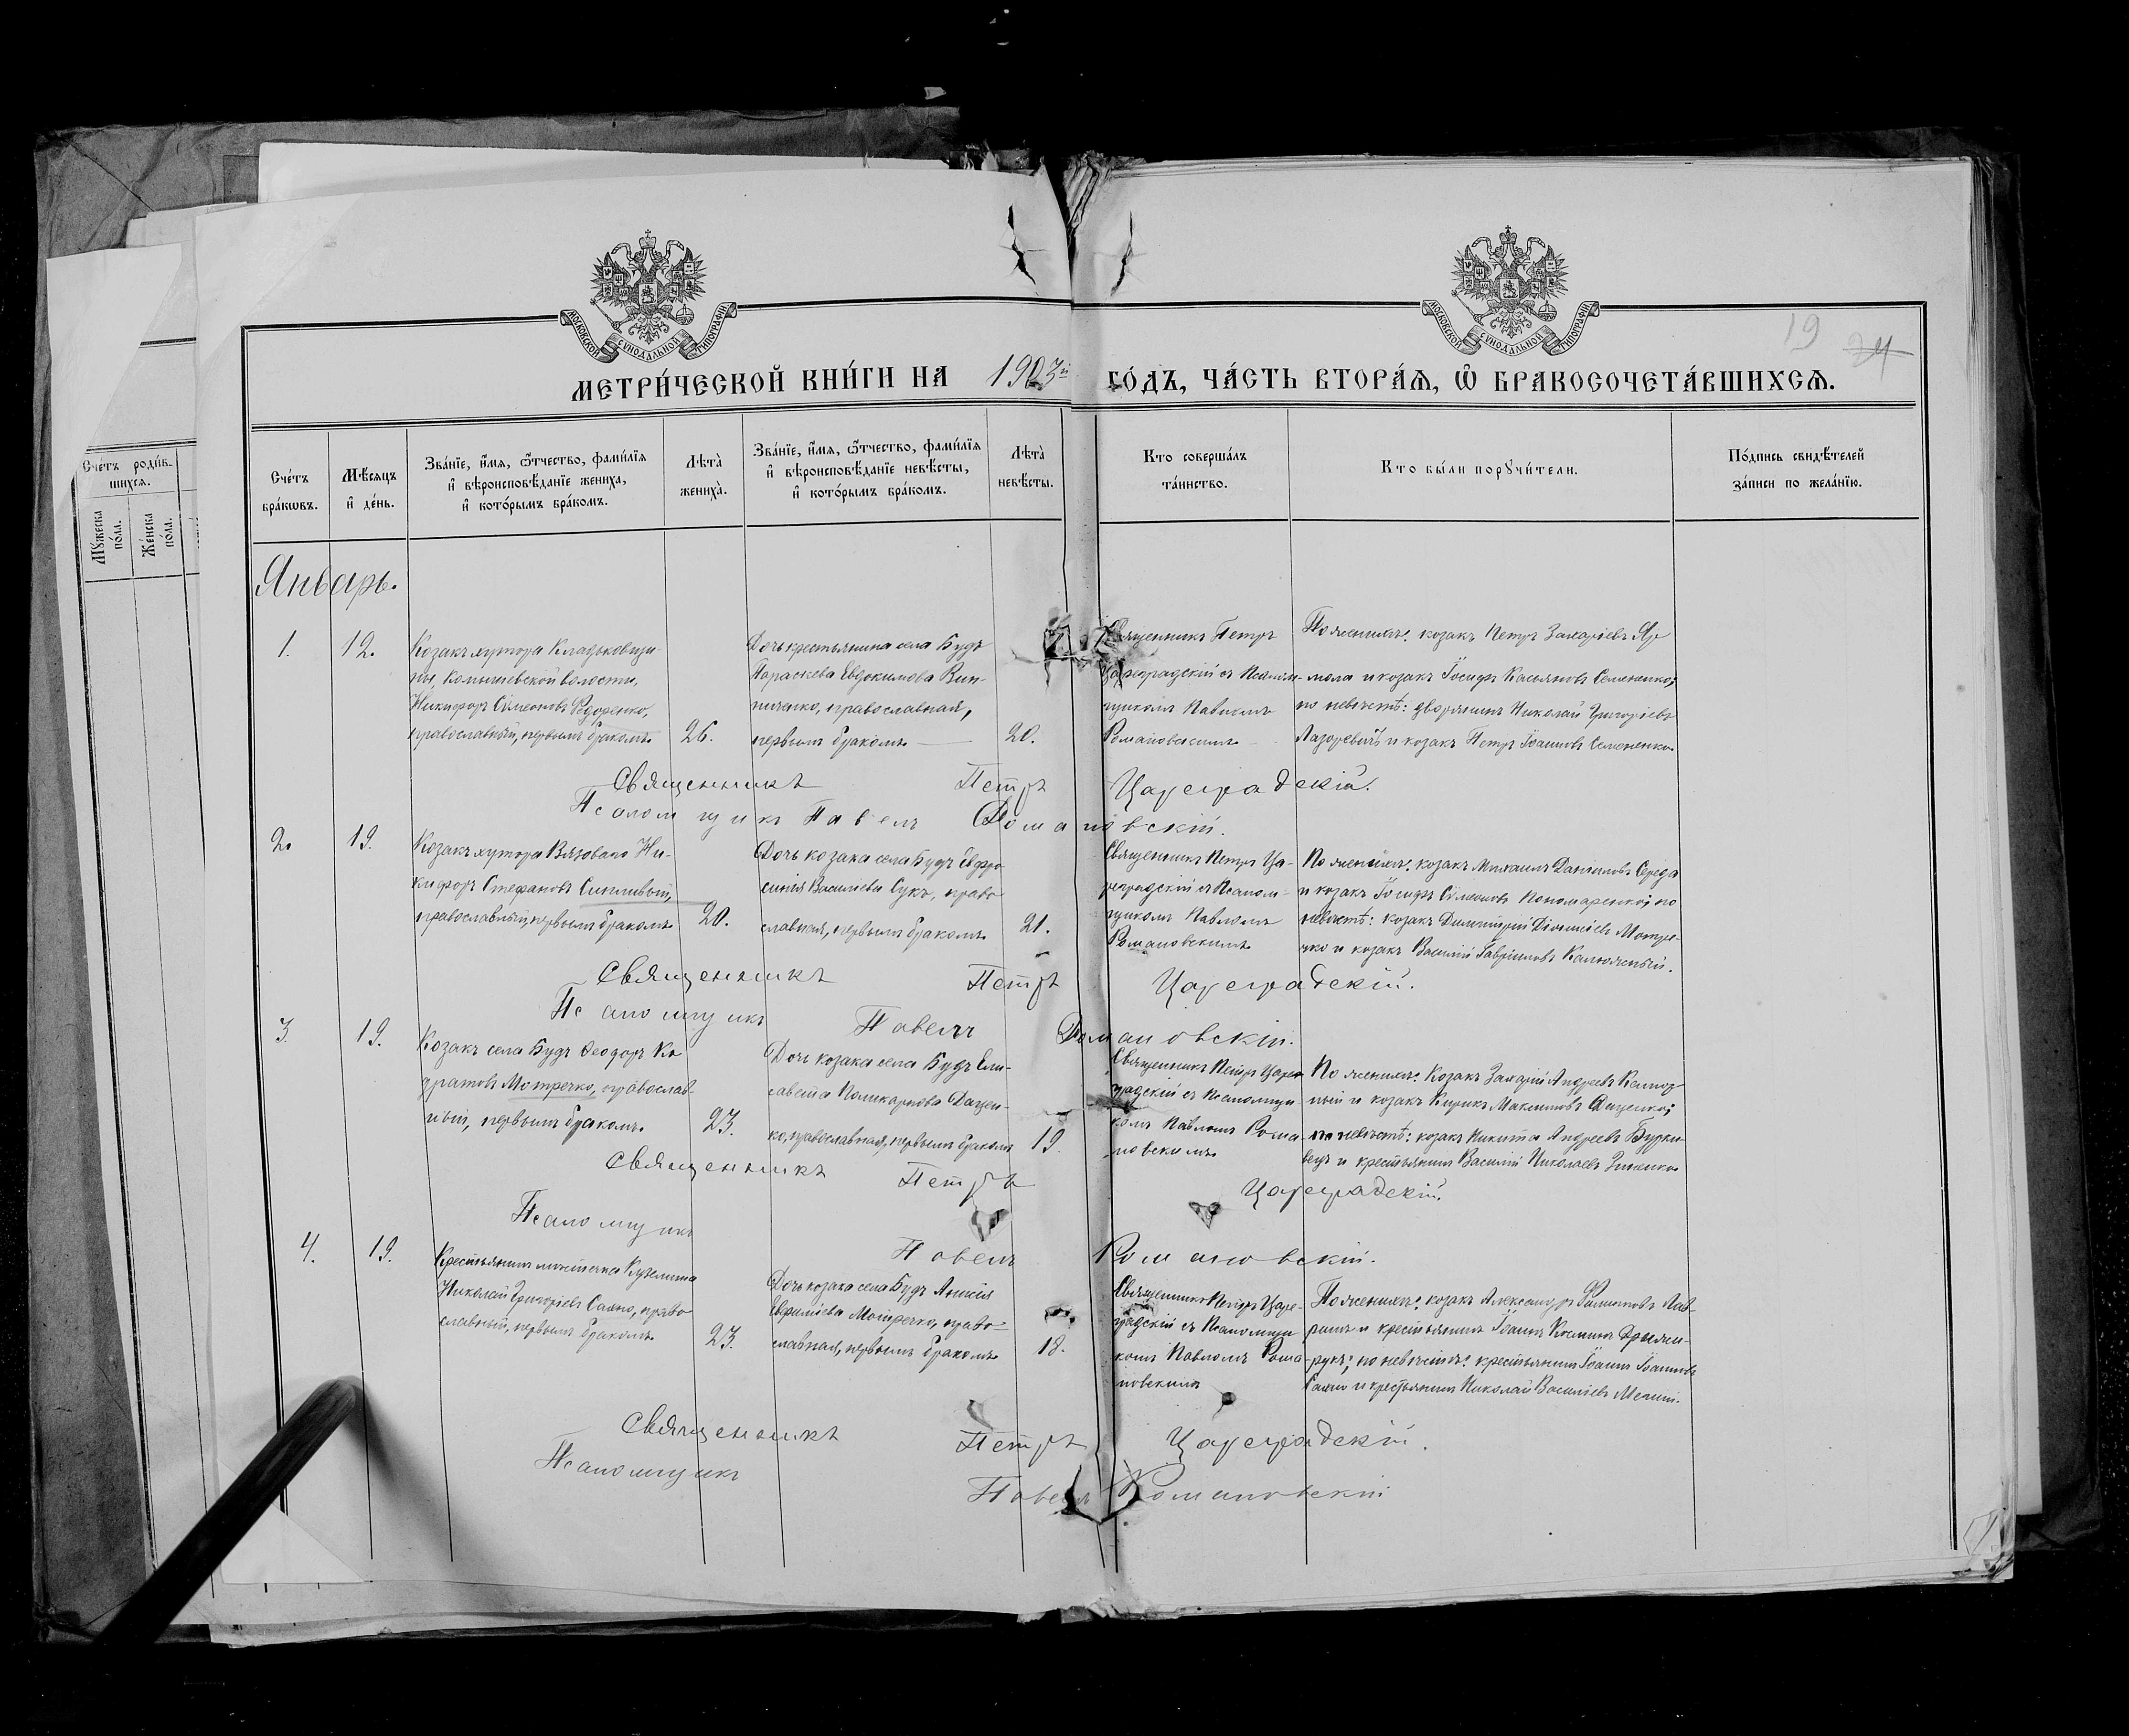 МОСКОВСКОЙ СУНОДАЛЬНОЙ ТИПОГРАФІИ
МОСКОВСКОЙ СУНОДАЛЬНОЙ ТИПОГРАФІИ
19 24
МЕТРИ́ЧЕСКОЙ КНИ́ГИ НА 1903й ГО́ДЪ, ЧА́СТЬ ВТОРА́Ѧ, Ѽ БРАКОСОЧЕТА́ВШИХСѦ.
Сче́тъ роди́в-
шихся.
Мꙋ́жеска
по́ла.
Же́нска
по́ла.
Сче́тъ
бра́кѡвъ.
Мѣ́сяцъ
и҆ де́нь.
Зва́нїе, и҆́мѧ, ѻ҆́тчество, фами́лїѧ
и҆ вѣроисповѣ́данїе жениха̀,
и҆ кото́рымъ бра́комъ.
Лѣта̀
жениха̀.
Зва́нїе, и҆́мѧ, ѻ҆́тчество, фами́лїѧ
и҆ вѣроисповѣ́данїе невѣ́сты,
и҆ кото́рымъ бра́комъ.
Лѣта̀
невѣ́сты.
Кто соверша́лъ
та́инство.
Кто бы́ли порꙋчи́тели.
По́дпись свидѣ́телей
за́писи по жела́нїю.
Январь.
1.
12.
Козакъ хутора Кладьковщи-
ны, Комышевской волости,
Никифоръ Сѵмеоновъ Федоренко,
православный, первымъ бракомъ.
26.
Дочь крестьянина села Будъ
Параскева Евдокимова Вин-
ниченко, православная,
первымъ бракомъ.
20.
Священникъ Петръ
Цареградскій съ Псалом-
щикомъ Павломъ
Романовскимъ.
По женихѣ: козакъ Петръ Захаріевъ Яр-
мола и козакъ Іосифъ Касьяновъ Семененко;
по невѣстѣ: дворянинъ Николай Григоріевъ
Лазоревичъ и козакъ Петръ Іоанновъ Семененко.
Священникъ Петръ Цареградскій.
Псаломщикъ Павелъ Романовскій.
2.
19.
Козакъ хутора Вязоваго Ни-
кифоръ Стефановъ Сипливый,
православный, первымъ бракомъ
20.
Дочь козака села Будъ Евфро-
синія Василіева Сукъ, право-
славная, первымъ бракомъ.
21.
Священникъ Петръ Ца-
реградскій съ Псалом-
щикомъ Павломъ
Романовскимъ.
По женихѣ: козакъ Михаилъ Даніиловъ Середа
и козакъ Іосифъ Сѵмеоновъ Пономаренко; по
невѣстѣ: козакъ Димитрій Діонисіевъ Мотре-
чко и козакъ Василій Гавріиловъ Калюжный.
Священникъ Петръ Цареградскій.
Псаломщикъ Павелъ Романовскій.
3.
19.
Козакъ села Будъ Ѳеодоръ Ко
дратовъ Мотречко, православ-
ный, первымъ бракомъ.
23.
Дочь козака села Будъ Ели-
савета Поликарпова Дацен-
ко, православная, первымъ бракомъ
19.
Священникъ Петръ Царе-
градскій съ Псаломщи-
комъ Павломъ Рома-
новскимъ.
По женихѣ: козакъ Захарій Андреевъ
ный и козакъ Кирикъ Максимовъ Даценко;
по невѣстѣ: козакъ Никита Андреевъ Бурки-
вецъ и крестьянинъ Василій Николаевъ Зиненко.
Священникъ Петръ Цареградскій.
Псаломщикъ Павелъ Романовскій.
4.
19.
Крестьянинъ мѣстечка Куземина
Николай Григоріевъ Саяно, право-
славный, первымъ бракомъ.
23.
Дочь козака села Будъ Анисія
Евфиміева Мотречко, право-
славная, первымъ бракомъ.
18.
Священникъ Петръ Царе-
градскій съ Псаломщи-
комъ Павломъ Рома-
новскимъ
По женихѣ: козакъ Александръ Филиповъ Лав-
ринъ и крестьянинъ Іоаннъ Косминъ
рукъ; по невѣстѣ: крестьянинъ Іоаннъ Іоанновъ
Саяно и крестьянинъ Николай Василіевъ
Священникъ Петръ Цареградскій.
Псаломщикъ
Павелъ Романовскій